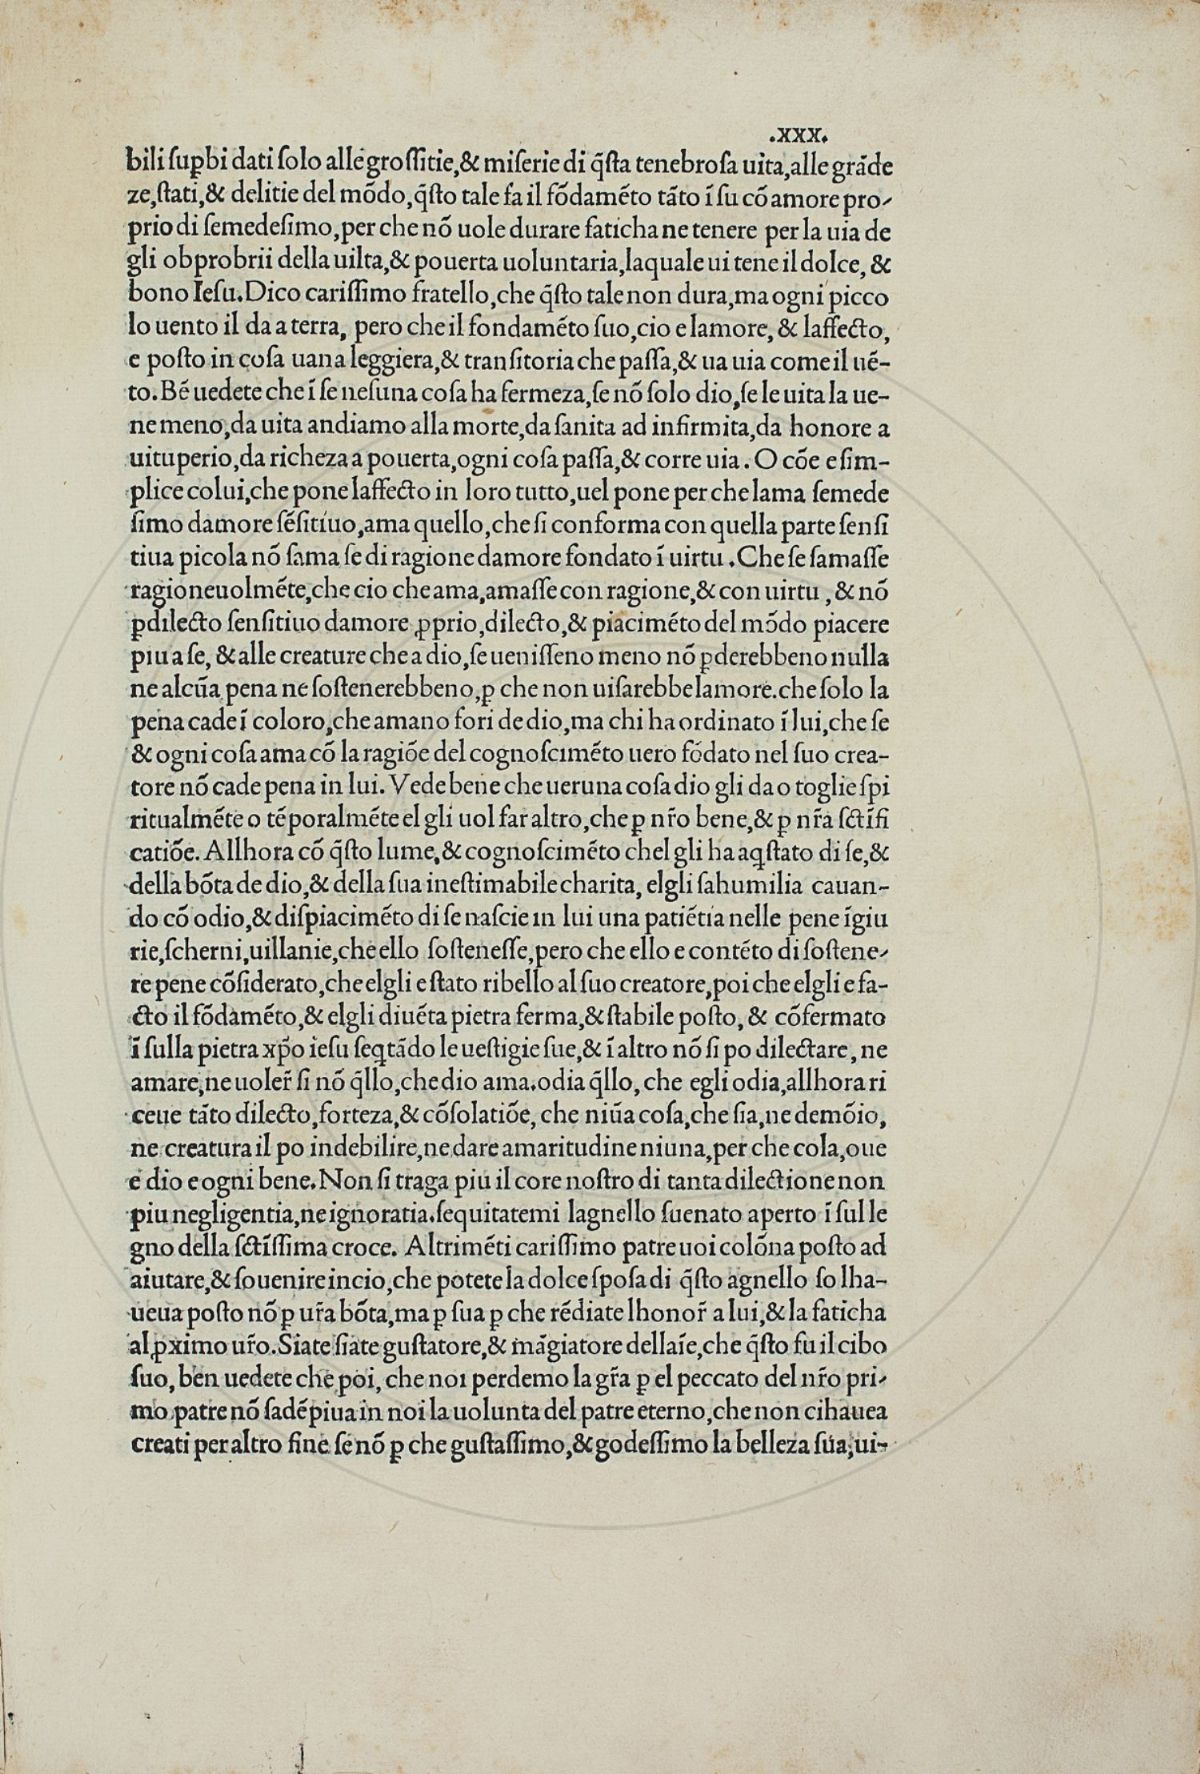 .XXX.
bili ſuꝑbi dati ſolo alle groſſitie,& miſerie di q̃ſta tenebroſa uita,alle grãde
ze,ſtati,& delitie del mõdo,q̃ſto tale fa il fõdamẽto tãto ĩ ſu cõ amore pro-
prio di ſemedeſimo,per che nõ uole durare faticha ne tenere per la uia de
gli obprobrii della uilta,& pouerta uoluntaria,laquale ui tene il dolce, &
bono Ieſu.Dico cariſſimo fratello,che q̃ſto tale non dura,ma ogni picco
lo uento il da a terra, pero che il fondamẽto ſuo,cio e lamore, & laffecto,
e poſto in coſa uana leggiera,& tranſitoria che paſſa,& ua uia come il uẽ-
to. Bẽ uedete che ĩ ſe neſuna coſa ha fermeza,ſe nõ ſolo dio,ſe le uita la ue-
ne meno,da uita andiamo alla morte,da ſanita ad infirmita,da honore a
uituperio,da richeza a pouerta,ogni coſa paſſa,& corre uia. O cõe e ſim-
plice colui,che pone laffecto in loro tutto,uel pone per che lama ſemede
ſimo damore ſẽſitiuo,ama quello,che ſi conforma con quella parte ſenſi
tiua picola nõ ſama ſe di ragione damore fondato ĩ uirtu .Che ſe ſamaſſe
ragioneuolmẽte,che cio che ama,amaſſe con ragione,& con uirtu , & nõ
ꝑ dilecto ſenſitiuo damore ꝓprio,dilecto,& piacimẽto del mõdo piacere
piu a ſe, & alle creature che a dio,ſe ueniſſeno meno nõ ꝑderebbeno nulla
ne alcũa pena ne ſoſtenerebbeno,ꝑ che non uiſarebbe lamore.che ſolo la
pena cade ĩ coloro,che amano fori de dio,ma chi ha ordinato ĩ lui,che ſe
& ogni coſa ama cõ la ragiõe del cognoſcimẽto uero fõdato nel ſuo crea-
tore nõ cade pena in lui. Vede bene che ueruna coſa dio gli da o toglie ſpi
ritualmẽte o tẽporalmẽte el gli uol far altro,che ꝑ nr̃o bene,& ꝑ nr̃a ſctĩfi
catiõe. Allhora cõ q̃ſto lume,& cognoſcimẽto chel gli ha aq̃ſtato di ſe,&
della bõta de dio,& della ſua ineſtimabile charita, elgli ſahumilia cauan-
do cõ odio,& diſpiacimẽto di ſe naſcie in lui una patiẽtia nelle pene ĩgiu
rie,ſcherni,uillanie,che ello ſoſteneſſe,pero che ello e contẽto di ſoſtene-
re pene cõſiderato,che elgli e ſtato ribello al ſuo creatore,poi che elgli e fa-
cto il fõdamẽto,& elgli diuẽta pietra ferma,& ſtabile poſto, & cõfermato
ĩ ſulla pietra xp̃o ieſu ſeq̃tãdo le ueſtigie ſue,& ĩ altro nõ ſi po dilectare, ne
amare,ne uoler̃ ſi nõ q̃llo,che dio ama.odia q̃llo, che egli odia,allhora ri
ceue tãto dilecto,forteza,& cõſolatiõe, che niũa coſa,che ſia,ne demõio,
ne creatura il po indebilire,ne dare amaritudine niuna,per che cola,oue
e dio e ogni bene. Non ſi traga piu il core noſtro di tanta dilectione non
piu negligentia,ne ignoratia.ſequitatemi lagnello ſuenato aperto ĩ ſul le
gno della ſctĩſſima croce. Altrimẽti cariſſimo patre uoi colõna poſto ad
aiutare,& ſouenire incio,che potete la dolce ſpoſa di q̃ſto agnello ſolha-
ueua poſto nõ ꝑ ur̃a bõta,ma ꝑ ſua ꝑ che rẽdiate lhonor̃ a lui,& la faticha
al ꝓximo ur̃o. Siate ſiate guſtatore,& mãgiatore dellaĩe,che q̃ſto fu il cibo
ſuo, ben uedete che poi, che noi perdemo la gr̃a ꝑ el peccato del nr̃o pri-
mo patre nõ ſadẽpiua in noi la uolunta del patre eterno,che non cihauea
creati per altro fine ſe nõ ꝑ che guſtaſſimo,& godeſſimo la belleza ſua,ui-